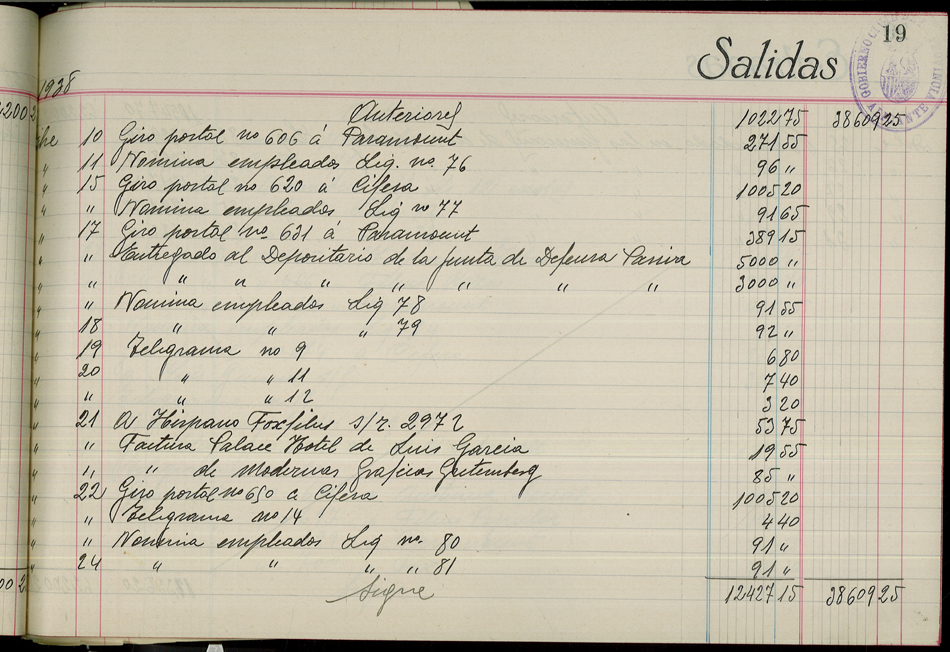 19
Salidas
1938
Anterior 1022 75 38609 25
bre 10 Giro postal no 606 á Paramount 271 55
" 11 Nomina empleados Liq. no. 76 96 "
" 15 Giro postal no 620 á Cifesa 1005 20
" " Nomina empleados Liq no 77 91 65
" 17 Giro postal no. 631 á Paramount 389 15
" " Entregado al Depositario de la Junta de Defensa Pasiva 5000 "
" " " " " " " " " 3000 "
" " Nomina empleados Liq 78 91 55
" 18 " " " 79 92 "
" 19 Telegrama no 9 6 80
" 20 " " 11 7 40
" " " " 12 3 20
" 21 A Hispano Foxfilms s/r. 2972 53 75
" " Factura Palace Hotel de Luis Garcia 19 55
" " " de Modernas Graficas Gutemberg 85 "
" 22 Giro postal no 650 a Cifesa 1005 20
" " Telegrama no 14 4 40
" " Nomina empleados Liq no. 80 91 "
" 24 " " " " 81 91 "
Sigue 12427 15 38609 25